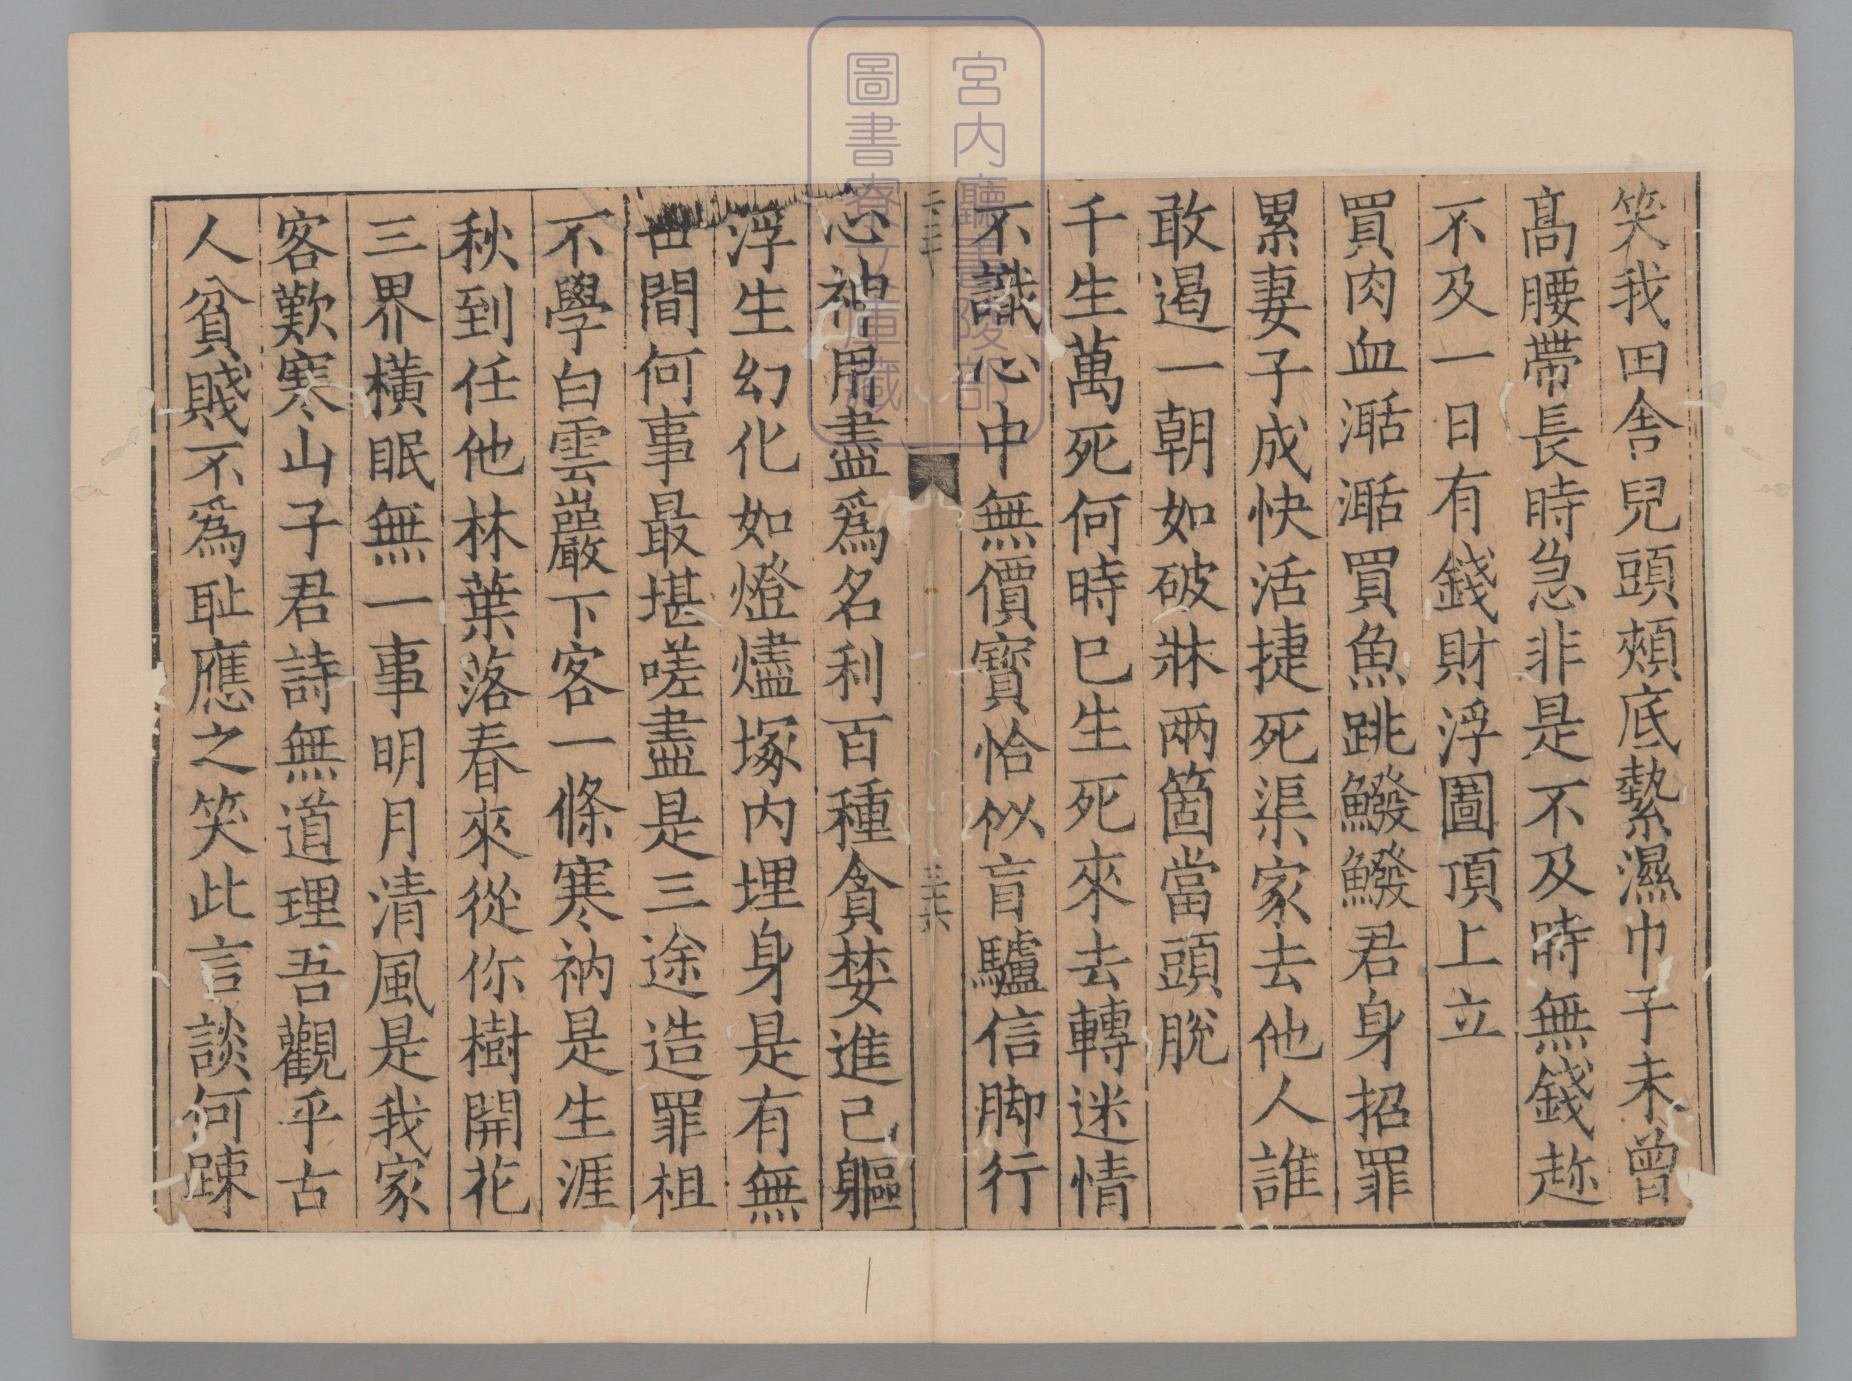 笑我田舎兒頭頰底縶濕巾子未曾
髙腰帶長時急非是不及時無錢趂
不及一日有錢財浮圖頂上立
買肉血𣽅𣽅買魚跳鱍鱍君身招罪
累妻子成快活捷死渠家去他人誰
敢遏一朝如破牀兩箇當頭脫
千生萬死何時已生死來去轉迷情
不識心中無價寳恰似盲驢信脚行
心神用盡爲名利百種貪婪進己軀
浮生幻化如燈燼塚内埋身是有無
世間何事最堪嗟盡是三途造罪柤
不學白雲巖下客一條寒衲是生涯
秋到任他林葉落春來從你樹開花
三界横眠無一事明月清風是我家
客歎寒山子君詩無道理吾觀乎古
人貧賤不爲耻應之笑此言談何踈
三六
宮内廳書陵部
圖書寮文庫藏